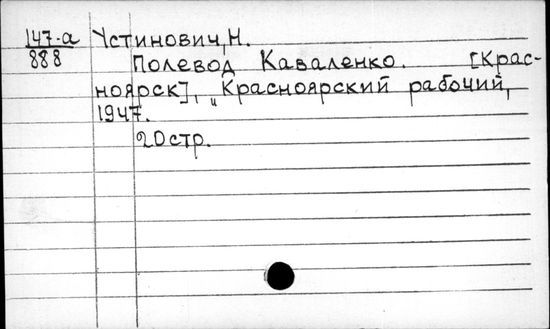 147-а Устинович, Н.
888
Полевод Каваленко. [Крас-
ноярск], „Красноярский рабочий,
1947.
20стр.